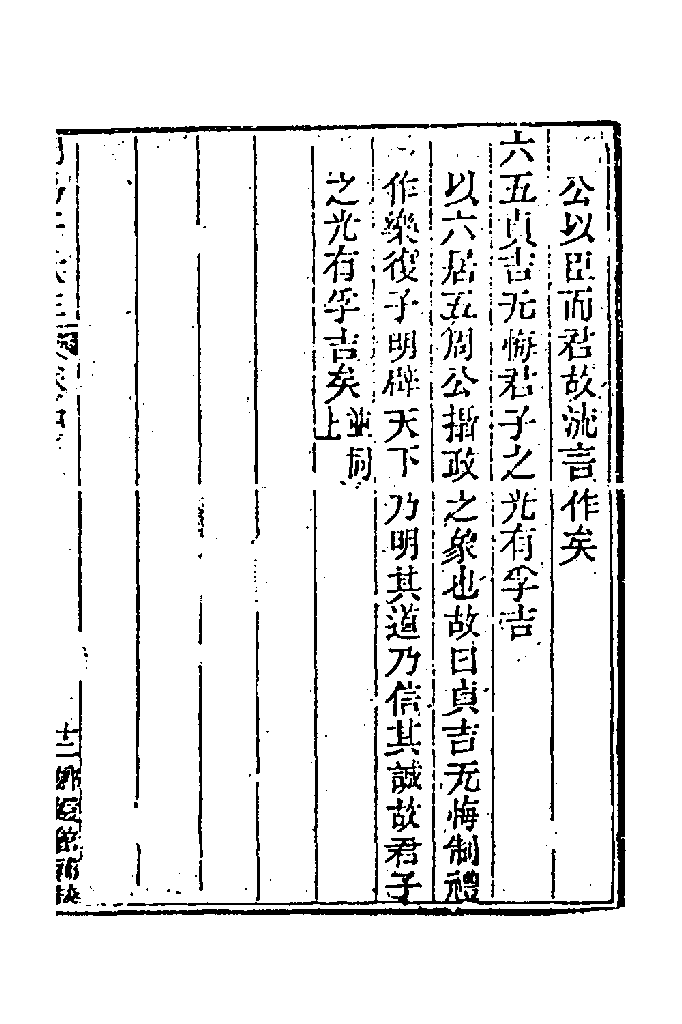 公以臣而君故流言作矣
六五貞吉无悔君子之光有孚吉
以六居五周公攝政之象也故曰貞吉无悔制禮
作樂復子明辟天下乃明其道乃信其誠故君子
之光有孚吉矣並同上
十二